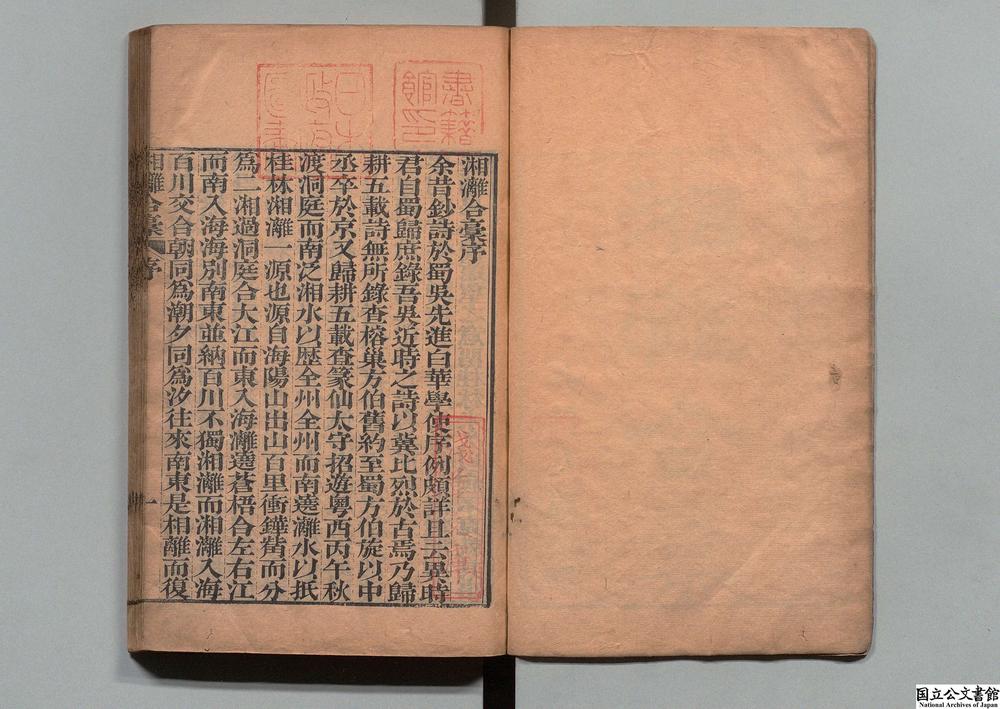 湘灕合稾序
余昔鈔詩於蜀吳先進白華學使序例頗詳且云異時
君自蜀歸庶錄吾吳近時之詩以冀比烈於古焉乃歸
耕五載詩無所錄查榕巢方伯舊約至蜀方伯旋以中
丞卒於京又歸耕五載查篆仙太守招遊粵西丙午秋
渡洞庭而南泛湘水以歷全州全州而南遶灕水以抵
桂林湘灕一源也源自海陽山出山百里衝鏵觜而分
爲二湘過洞庭合大江而東入海灕遶蒼梧合左右江
而南入海海別南東並納百川不獨湘灕而湘灕入海
百川交合朝同爲潮夕同爲汐往來南東是相離而復
湘灕合稾
序
一
書籍
館印
日本
政府
圖書
国立公文書館
National Archives of Japan